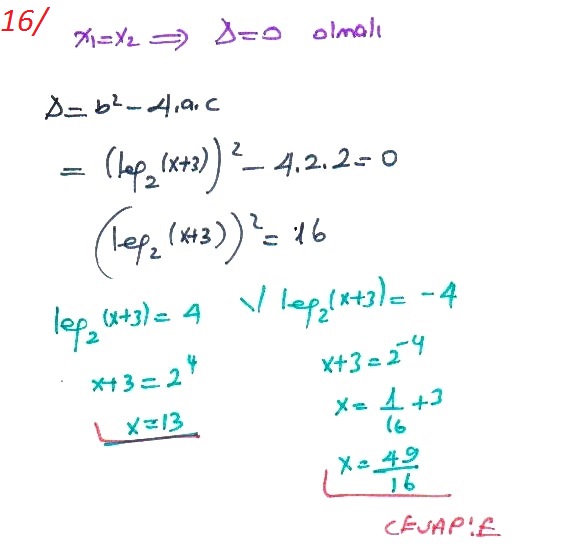 16/
x₁=x₂ ⟹ Δ=0 olmalı
Δ=b²-4.a.c
= (log₂(x+3))²-4.2.2=0
(log₂(x+3))²=16
log₂(x+3)=4 ∨ log₂(x+3)=-4
x+3=2⁴
x=13
x+3=2⁻⁴
x=1/16+3
x=49/16
CEVAP:E